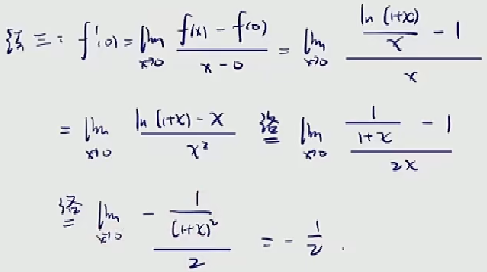 法三: f'(0) = lim_{x→0} \frac{f(x) - f(0)}{x - 0} = lim_{x→0} \frac{\frac{ln(1+x)}{x} - 1}{x}
= lim_{x→0} \frac{ln(1+x) - x}{x^2} 洛= lim_{x→0} \frac{\frac{1}{1+x} - 1}{2x}
洛= lim_{x→0} \frac{-\frac{1}{(1+x)^2}}{2} = -\frac{1}{2}.